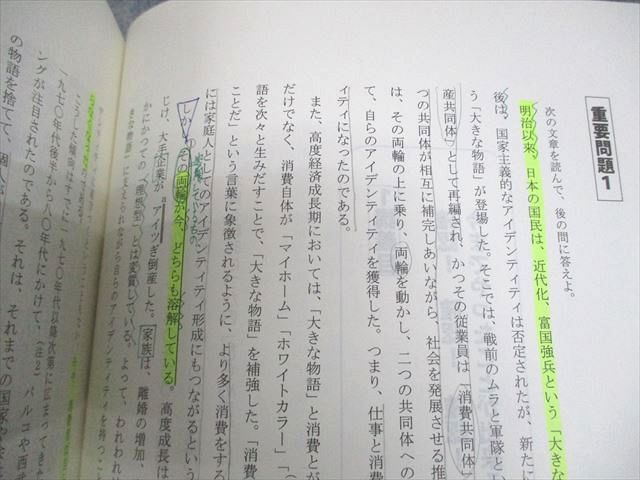 重要問題1
次の文章を読んで、後の問に答えよ。
明治以来、日本の国民は、近代化、富国強兵という「大き
後は、国家主義的なアイデンティティは否定されたが、新た
う「大きな物語」が登場した。そこでは、戦前のムラと軍隊と
産共同体」として再編され、かつその従業員は「消費共同体」
つの共同体が相互に補完しあいながら、社会を発展させる推
は、その両輪の上に乗り、両輪を動かし、二つの共同体への
て、自らのアイデンティティを獲得した。つまり、仕事と消費
ィティになったのである。
また、高度経済成長期においては、「大きな物語」と消費とが
だけでなく、消費自体が「マイホーム」「ホワイトカラー」「
語を次々と生みだすことで、「大きな物語」を補強した。「消費
ことだ」という言葉に象徴されるように、より多く消費をする
には家庭人としてのアイデンティティ形成にもつながるという
しかし、その両輪が今、どちらも溶解している。高度成長は
じけ、大手企業がアイツぎ倒産した。家族は、離婚の増加、
かにかつての「理想型」とは変質している。よって、われわれは
きな物語」に支えられながら自らのアイデンティティを持つこと
こうした傾向はすでに一九七〇年代以降次第に広まってきた
一九七〇年代後半から八〇年代にかけて、(注2)パルコや西武
ングが注目されたのである。それは、それまでの国家や会
の物語を捨てて、個人が